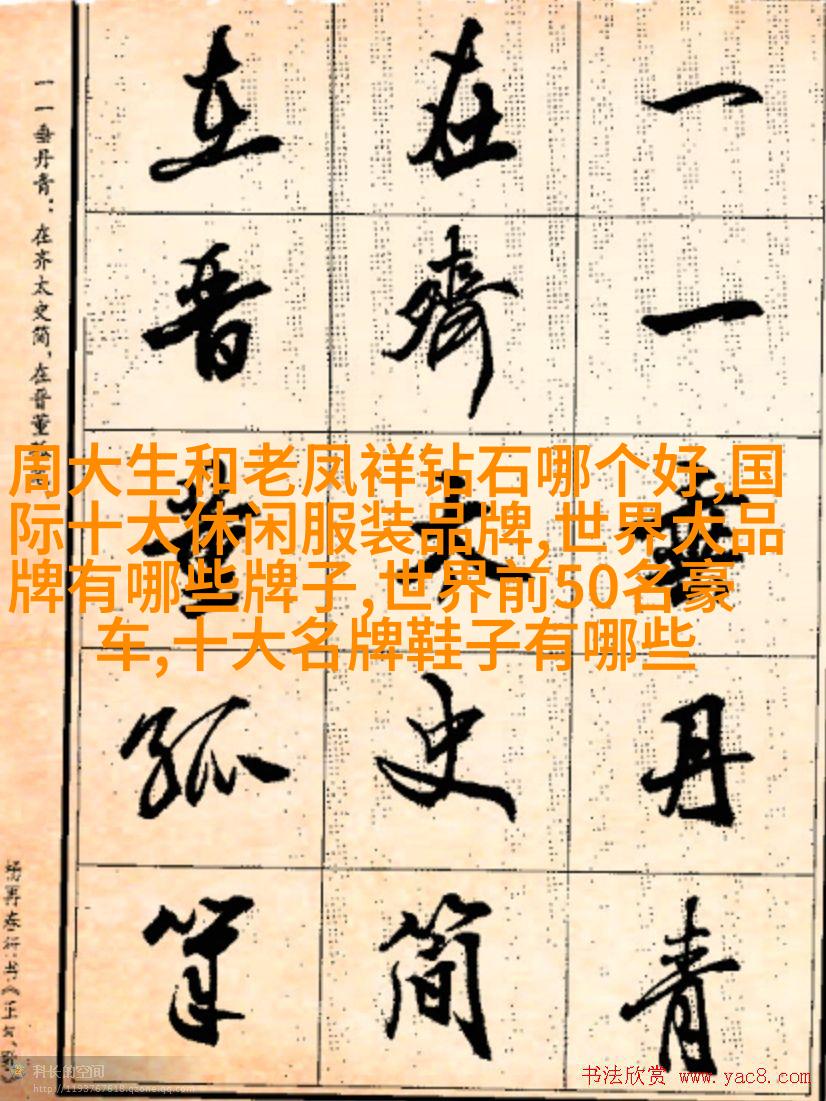 一一垂丹青
在齊太史简
在晋董狐筆
一一垂丹青：在齐太史简，在晋董
杨再春行书《正气歌》
周大生和老凤祥钻石哪个好,国
际十大休闲服装品牌,世界大品
牌有哪些牌子,世界前50名豪
车,十大名牌鞋子有哪些
科长的空间
http://1193767618.qzone.qq.com
书法欣赏 www.yac8.com